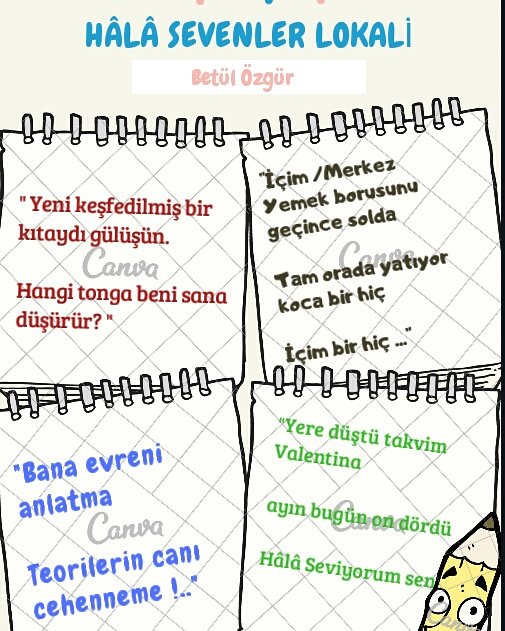 HÂLÂ SEVENLER LOKALİ
Betül Özgür
" Yeni keşfedilmiş bir
kıtaydı gülüşün.
Hangi tonga beni sana
düşürür? "
"İçim /Merkez
Yemek borusunu
geçince solda
Tam orada yatıyor
koca bir hiç
İçim bir hiç ..."
"Bana evreni
anlatma
Teorilerin canı
cehenneme !.."
"Yere düştü takvim
Valentina
ayın bugün on dördü
Hâlâ Seviyorum sen
Canva
Canva
Canva
Canva
Canva